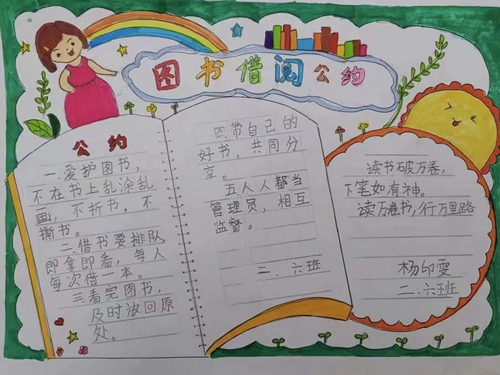 图书借阅公约
公约
一.爱护图书,
不在书上乱涂乱
画,不折书.不
撕书。
二.借书要排队
即拿即看,每人
每次借一本。
三看完图书,
及时放回原
处。
四.带自己的
好书,共同分
享。
五人人都当
管理员,相互
监督。
二、六班
读书破万卷,
下笔如有神。
读万卷书,行万里路
杨
二、六班